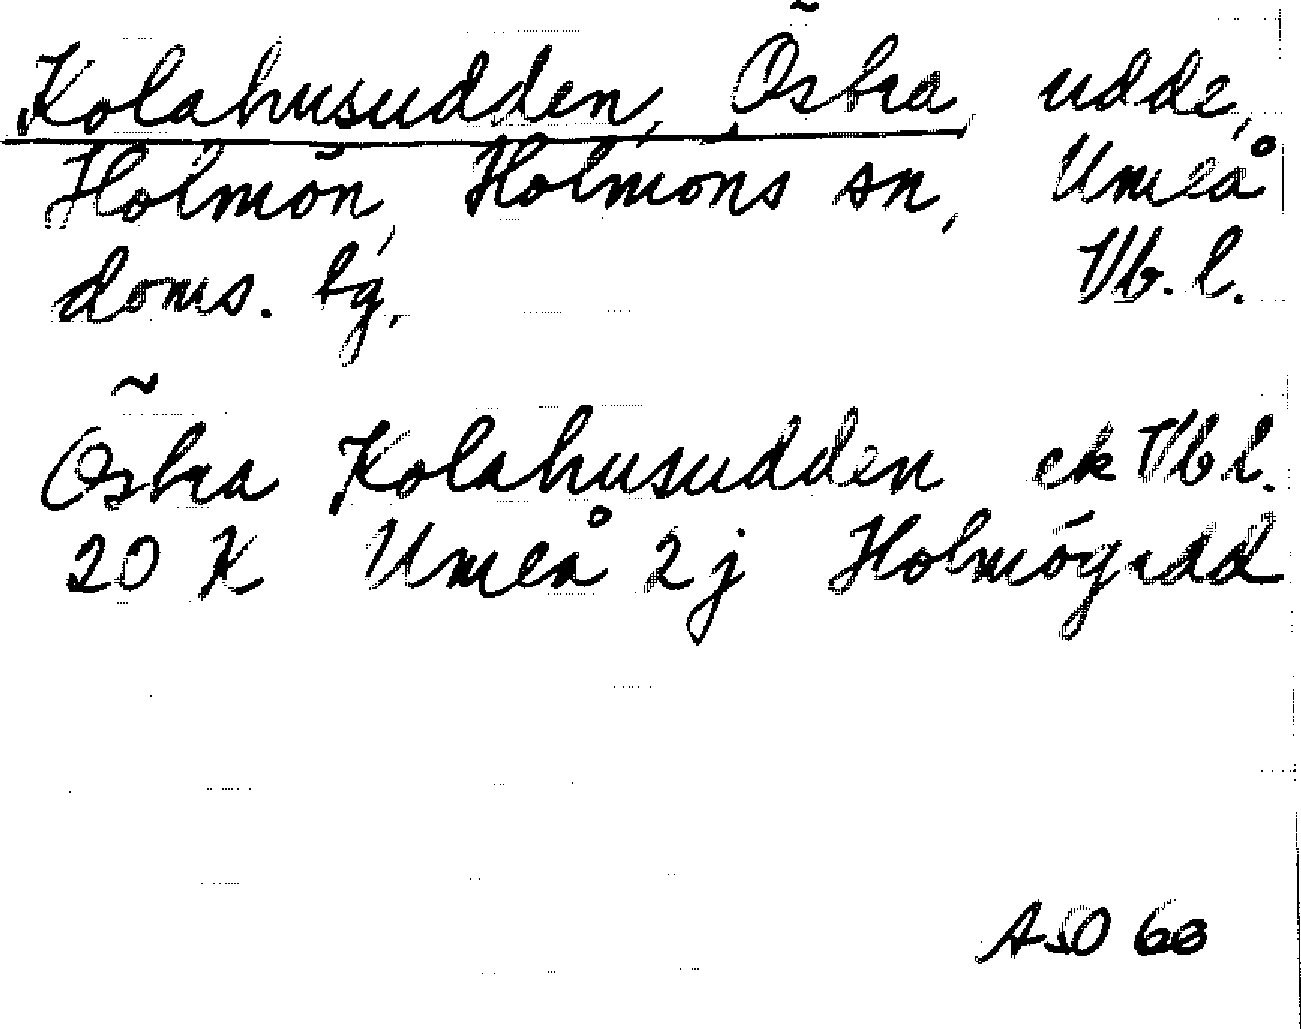 Kolahusudden, Östra, udde,
Holmön, Holmöns sn, Umeå
doms. tg, Vb. l.
Östra Kolahusudden ek Vb l.
20 K Umeå 2j Holmögadd
ASO 66